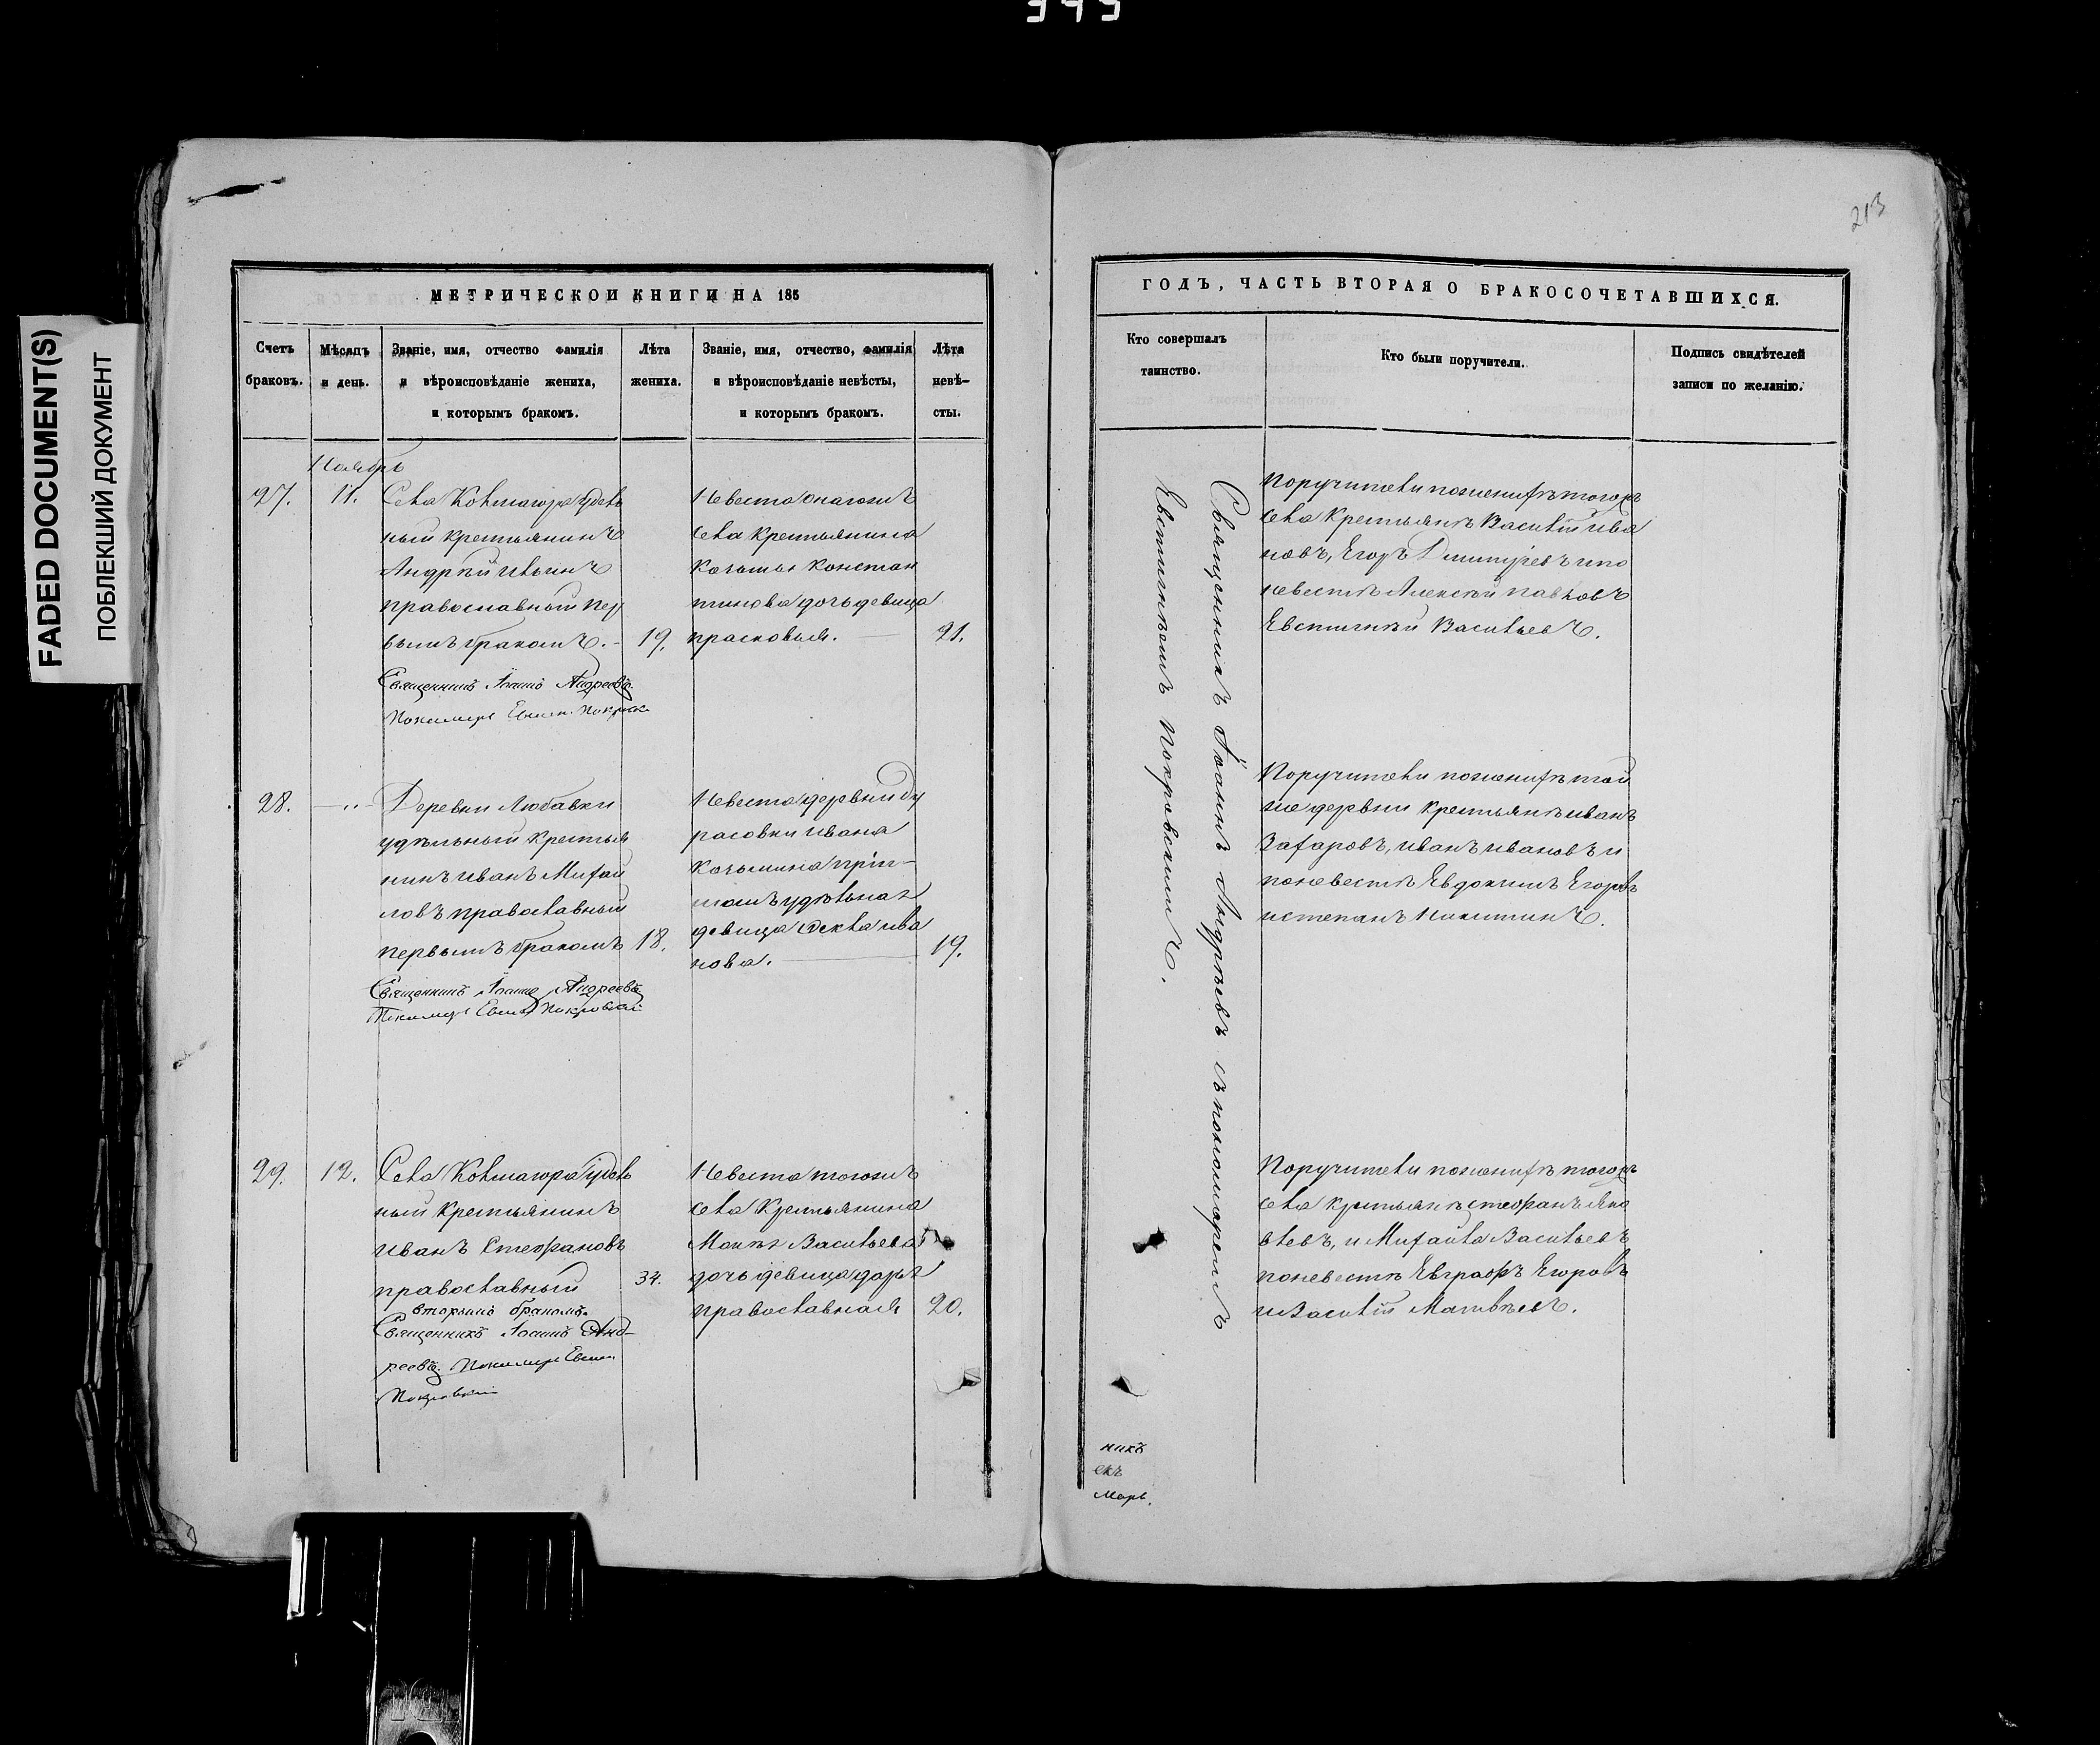 FADED DOCUMENT(S)
ПОБЛЕКШИЙ ДОКУМЕНТ
213
МЕТРИЧЕСКОИ КНИГИ НА 185
Счетъ браковъ.
Мѣсяцъ и день.
Званіе, имя, отчество фамилія
и вѣроисповѣданіе жениха,
и которымъ бракомъ.
Лѣта жениха.
Званіе, имя, отчество, фамилія
и вѣроисповѣданіе невѣсты,
и которымъ бракомъ.
Лѣта невѣ-
сты.
Ноябрь
27.
11.
Села Колмагора удель
ный крестьянинъ
Андрей Ильинъ
православный пер
вымъ бракомъ.
19.
Священникъ Іоаннъ Андреевъ.
Пономарь
Невеста
села крестьянина
Козьмы Констан
тинова дочь девица
прасковья.
21.
28.
Деревни Любавки
удѣльный крестья
нинъ иванъ Михаи
ловъ православный
первымъ бракомъ
18.
Священникъ Іоаннъ Андреевъ
Пономарь Покровскій
Невеста деревни Ду
расовки ивана
козьмина
удѣльная
девица Фекла ива
нова.
19.
29.
12.
Села Колмагора удель
ный крестьянинъ
иванъ Стефановъ
православный
вторымъ бракомъ.
34.
Священникъ Іоаннъ Анд-
реевъ. Пономарь
Покровскій
Невеста тогожъ
села крестьянина
Васильева
дочь девица дарья
православная
20.
ГОДЪ, ЧАСТЬ ВТОРАЯ О БРАКОСОЧЕТАВШИХСЯ.
Кто совершалъ
таинство.
Кто были поручители.
Подпись свидѣтелей
записи по желанію.
Священникъ Іоаннъ Андреевъ съ пономаремъ
Евстигнѣемъ Покровскимъ.
Поручители по женихѣ тогожъ
села крестьянѣ Василій ива
новъ, Егоръ Дмитріевъ и по
невестѣ Алексѣй павловъ
Евстигнѣй Васильевъ.
Поручители по женихѣ той
же деревни крестьянѣ иванъ
Захаровъ, иванъ ивановъ и
по невестѣ Евдокимъ Егоровъ
и степанъ Никитинъ.
Поручители по женихѣ тогожъ
села крестьянѣ стефанъ яко
влевъ, и Михайла Васильевъ
по невестѣ Евграфъ Егоровъ
и Василій Матвѣевъ.
никъ